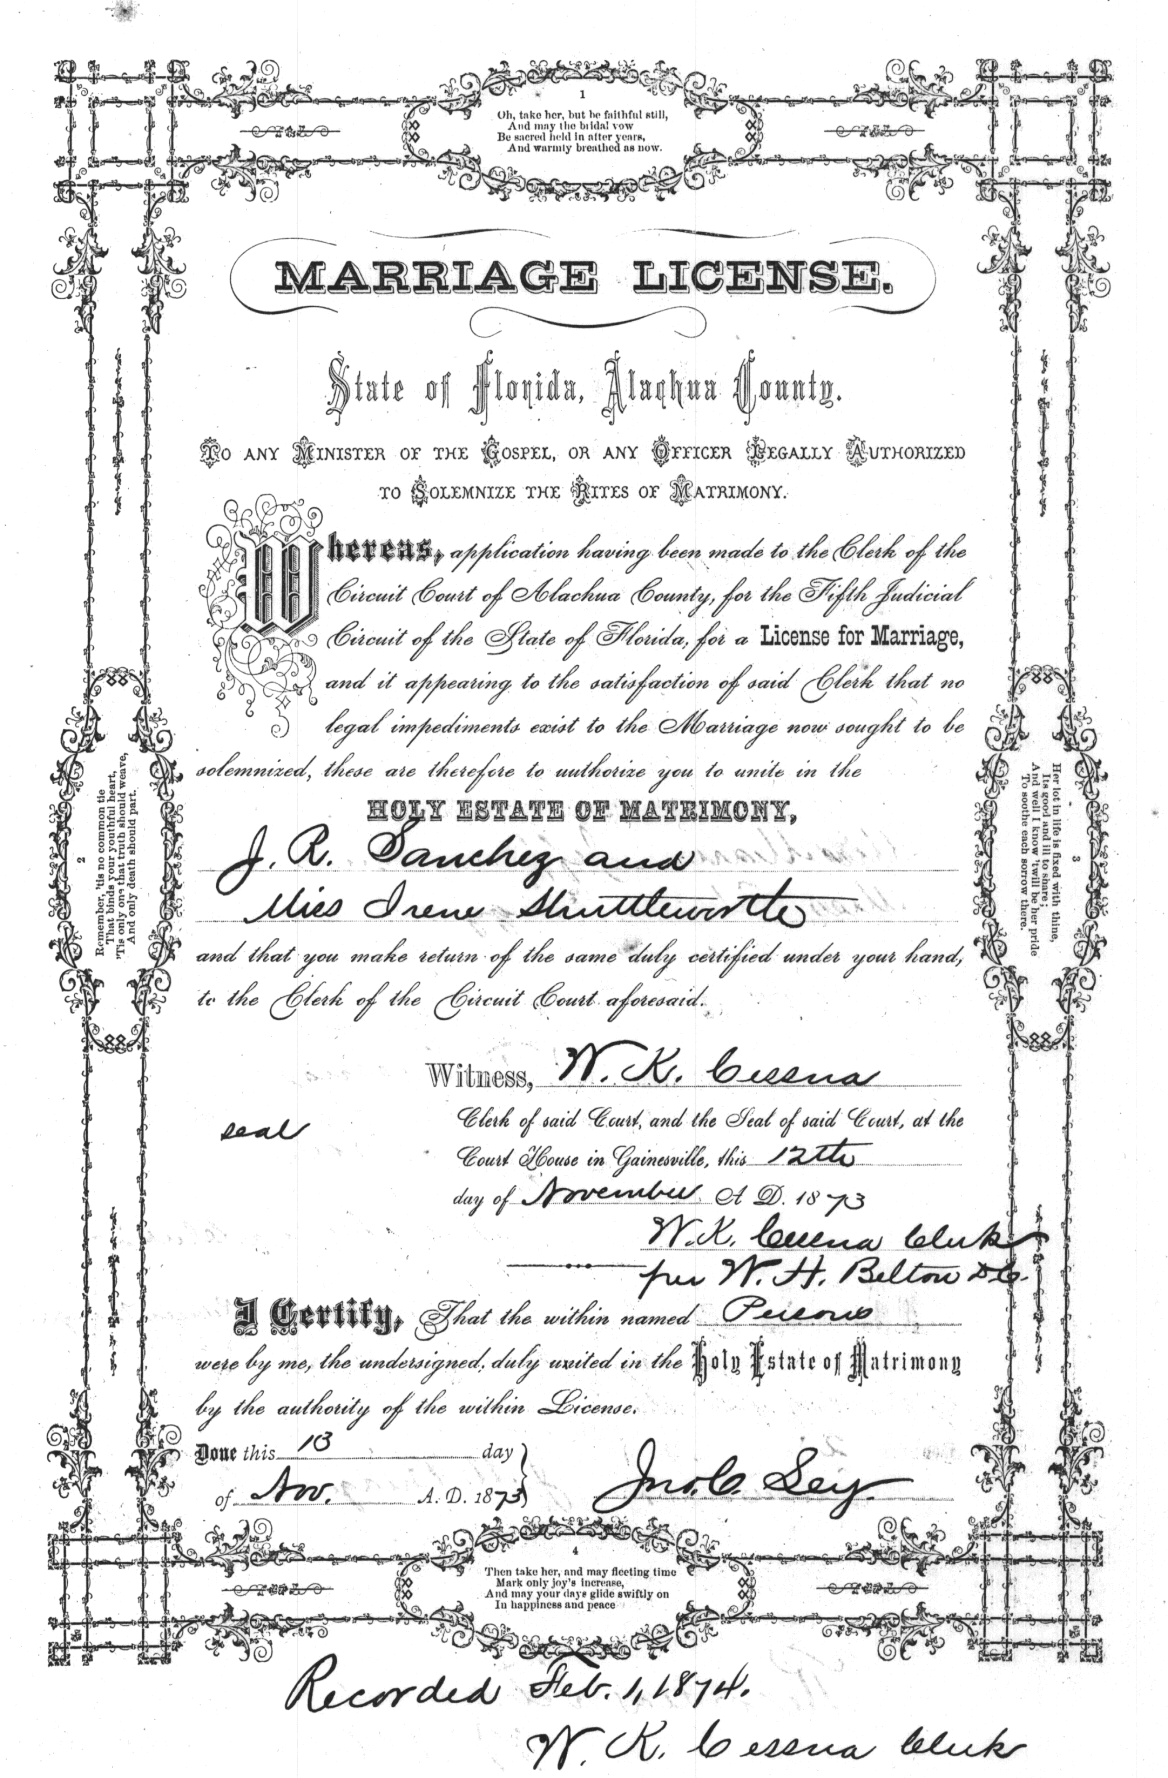 1
Oh, take her, but be faithful still,
And may the bridal vow
Be sacred held in after years,
And warmly breathed as now.
MARRIAGE LICENSE.
State of Florida, Alachua County.
TO ANY MINISTER OF THE GOSPEL, OR ANY OFFICER LEGALLY AUTHORIZED
TO SOLEMNIZE THE RITES OF MATRIMONY.
Whereas, application having been made to the Clerk of the
Circuit Court of Alachua County, for the Fifth Judicial
Circuit of the State of Florida, for a License for Marriage,
and it appearing to the satisfaction of said Clerk that no
legal impediments exist to the Marriage now sought to be
solemnized, these are therefore to authorize you to unite in the
HOLY ESTATE OF MATRIMONY,
J. R. Sanchez and
Miss Irene Shuttleworth
and that you make return of the same duly certified under your hand,
to the Clerk of the Circuit Court aforesaid.
2
Remember, 'tis no common tie
That binds your youthful heart,
'Tis only one that truth should weave,
And only death should part.
3
Her lot in life is fixed with thine,
Its good and ill to share;
And well I know 'twill be her pride
To soothe each sorrow there.
Witness, W. K. Cessna
seal
Clerk of said Court, and the Seal of said Court, at the
Court House in Gainesville, this 12th
day of November A D. 1873
W. K. Cessna Clerk
per W. H. Belton D.C.
I Certify, That the within named Persons
were by me, the undersigned, duly united in the Holy Estate of Matrimony
by the authority of the within License.
Done this 13 day
of Nov. A. D. 1873
Jno. C. Ley
4
Then take her, and may fleeting time
Mark only joy's increase,
And may your days glide swiftly on
In happiness and peace
Recorded Feb. 1, 1874.
W. K. Cessna Clerk